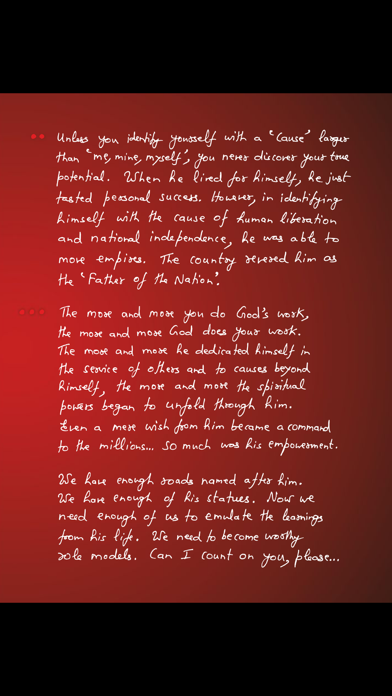 •• Unless you identify yourself with a 'Cause' larger
than 'me, mine, myself', you never discover your true
potential. When he lived for himself, he just
tasted personal success. However, in identifying
himself with the cause of human liberation
and national independence, he was able to
move empires. The country revered him as
the 'Father of the Nation'.
••• The more and more you do God's work,
the more and more God does your work.
The more and more he dedicated himself in
the service of others and to causes beyond
himself, the more and more the spiritual
powers began to unfold through him.
Even a mere wish from him became a command
to the millions... so much was his empowerment.
We have enough roads named after him.
We have enough of his statues. Now we
need enough of us to emulate the learnings
from his life. We need to become worthy
role models. Can I count on you, please...